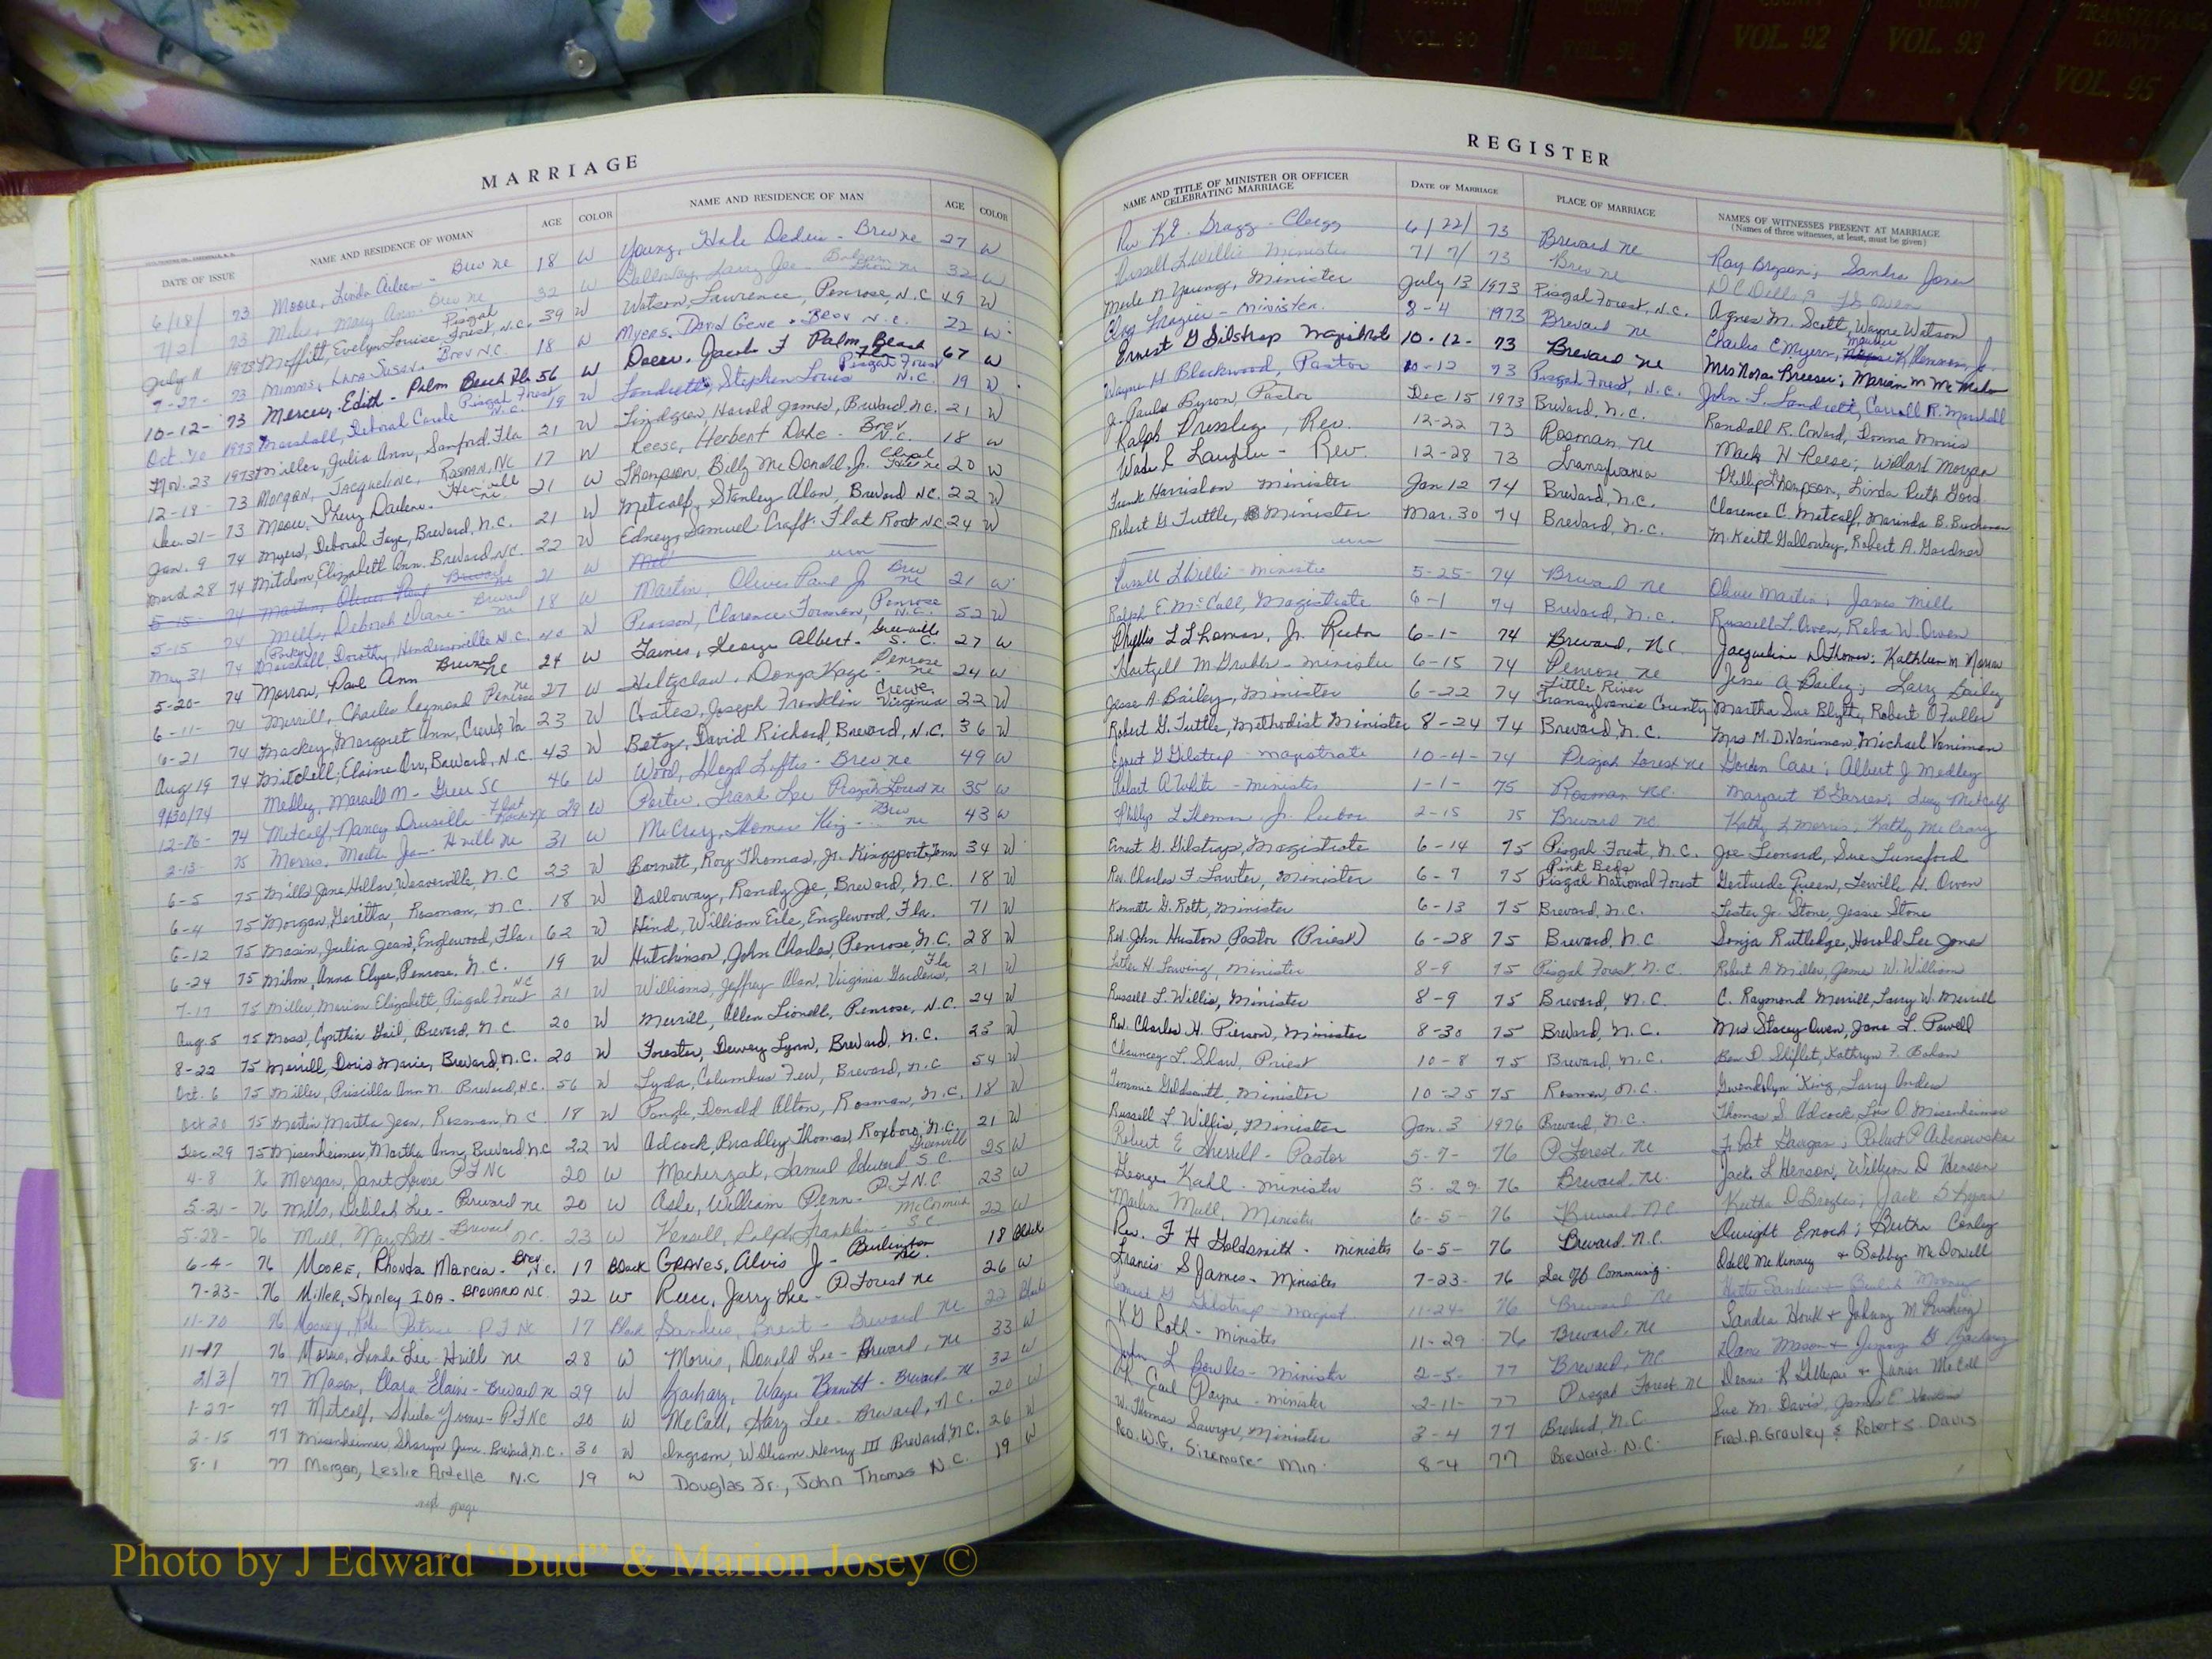 VOL. 90
VOL. 91
VOL. 92
VOL. 93
TRANSYLVANIA COUNTY
VOL. 95
MARRIAGE
DATE OF ISSUE NAME AND RESIDENCE OF WOMAN AGE COLOR NAME AND RESIDENCE OF MAN AGE COLOR
6/18/ 73 Moore, Linda - Brev NC 18 W Young, Hale - Brev NC 27 W
7/2/ 73 Mary Ann Brev NC 32 W Galloway, Larry Joe - 32 W
July 11 1973 Moffitt, Evelyn Louise Pisgah Forest, N.C. 39 W Watson, Lawrence, Penrose, N.C. 49 W
7-27- 73 Susan. Brev N.C. 18 W Myers, David Gene. Brev N.C. 22 W
10-12- 73 Mercer, Edith - Palm Beach Fla 56 W Jacob F Palm Beach Fla 67 W
Oct. 10 1973 Marshall, Deborah Carole Pisgah Forest N.C. 19 W Stephen Louis Pisgah Forest N.C. 19 W
Nov. 23 1973 Miller, Julia Ann, Sanford, Fla 21 W Lindgren, Harold James, Brevard, N.C. 21 W
12-18- 73 Morgan, Jacqueline, Rosman, NC 17 W Reese, Herbert Dale - Brev N.C. 18 W
Dec. 21- 73 Moore, Sherry Darlene. 21 W Thompson, Billy McDonald, Jr. 20 W
Jan. 9 74 Myers, Deborah Faye, Brevard, N.C. 21 W Metcalf, Stanley Alan, Brevard NC. 22 W
March 28 74 Mitchem, Elizabeth Ann, Brevard, NC. 22 W Edney, Samuel Craft. Flat Rock NC 24 W
5-15- 74 Martin, Oliver Paul Brevard NC 21 W
5-15 74 Mills, Deborah Diane - Brevard NC 18 W Martin, Oliver Paul Jr Brev NC 21 W
May 31 74 Marshall, Dorothy, Hendersonville N.C. 40 W Pearson, Clarence Forman, Penrose N.C. 52 W
5-20- 74 Morrow, Ann Brevard NC 24 W George Albert - Greenville S.C. 27 W
6-11- 74 Merrill, Charles Raymond Penrose NC 27 W Holtzclaw, Donza Kaye - Penrose NC 24 W
6-21 74 Mackey, Margaret Ann, Crewe, Va 23 W Coates, Joseph Franklin Crewe, Virginia 22 W
Aug 19 74 Mitchell, Elaine Orr, Brevard, N.C. 43 W David Richard, Brevard, N.C. 36 W
9/30/74 Medley, M - Greer SC 46 W Wood, Lloyd Loftis - Brev NC 49 W
12-16- 74 Metcalf, Nancy Drusilla - Flat Rock NC 29 W Porter, Frank Lee Pisgah Forest NC 35 W
2-13- 75 Morris, - Hville NC 31 W McCrary, Thomas King - Brev NC 43 W
6-5 75 Mills, Jane Hiller, Weaverville, N.C 23 W Barnett, Roy Thomas, Jr. Kingsport, Tenn 34 W
6-4 75 Morgan, Geretta, Rosman, N.C. 18 W Galloway, Randy Joe, Brevard, N.C. 18 W
6-12 75 Julia Jean, Englewood, Fla. 62 W Hind, William Englewood, Fla. 71 W
6-24 75 Anna Elyse, Penrose, N.C. 19 W Hutchinson, John Charles, Penrose, N.C. 28 W
7-17 75 Miller, Marian Elizabeth, Pisgah Forest NC 21 W Williams, Jeffrey Alan, Virginia Gardens, Fla 21 W
Aug. 5 75 Moss, Cynthia Gail, Brevard, N.C 20 W Merrill, Allen Lionell, Penrose, N.C. 24 W
8-22 75 Merrill, Doris Marie, Brevard, N.C. 20 W Forester, Dewey Lynn, Brevard, N.C. 23 W
Oct. 6 75 Miller, Priscilla Ann N. Brevard, N.C. 56 W Lyda, Columbus Few, Brevard, N.C 54 W
Oct 20 75 Martin, Martha Jean, Rosman, N.C 18 W Pangle, Donald Alton, Rosman, N.C. 18 W
Dec. 29 75 Misenheimer, Martha Ann, Brevard N.C 22 W Adcock, Bradley Thomas, Roxboro, N.C. 21 W
4-8 76 Morgan, Janet Louise P F NC 20 W Samuel Edward Greenville S C 25 W
5-21- 76 Mills, Delilah Lee - Brevard NC 20 W Ashe, William Penn - P F N.C 23 W
5-28- 76 Mull, Mary Beth - Brevard N.C. 23 W Ralph Franklin - McCormick S C 22 W
6-4- 76 Moore, Rhonda Marcia - Brev N.C. 17 Black Graves, Alvis J - Burlington NC. 18 Black
7-23- 76 Miller, Shirley Ida - Brevard N.C. 22 W Reece, Jerry Lee - P Forest NC 26 W
11-20 76 P F NC 17 Black Sanders, Brent - Brevard NC 22 Black
11-17 76 Morris, Linda Lee Hvill NC 28 W Morris, Donald Lee - Brevard, NC 33 W
2/3/ 77 Mason, Clara Elaine - Brevard NC 29 W Zachary, Wayne Bennett - Brevard NC 32 W
1-27- 77 Metcalf, Sheila Yvonne - P F NC 20 W McCall, Gary Lee - Brevard, N.C. 20 W
2-15 77 Misenheimer, Sharyn June Brevard, N.C. 30 W Ingram, William Henry III Brevard, N.C. 26 W
8-1 77 Morgan, Leslie Ardelle N.C 19 W Douglas Jr., John Thomas N.C. 19 W
next page
REGISTER
NAME AND TITLE OF MINISTER OR OFFICER CELEBRATING MARRIAGE DATE OF MARRIAGE PLACE OF MARRIAGE NAMES OF WITNESSES PRESENT AT MARRIAGE
(Names of three witnesses, at least, must be given)
Rev - Clergy 6/22/ 73 Brevard NC Ray Brogan; Sandra Jones
Russell L Willis Minister 7/7/ 73 Brev NC
Merle N Young, Minister July 13 1973 Pisgah Forest, N.C. Agnes M. Scott, Wayne Watson
Minister. 8-4 1973 Brevard NC Charles C Myers,
Ernest G Gilstrap Magistrate 10-12- 73 Brevard NC Mrs Nora Marian M McMahan
Wayne H Blackwood, Pastor 10-12 73 Pisgah Forest, N.C. John L. Carroll R. Marshall
J. Paul Byron, Pastor Dec. 15 1973 Brevard, N.C. Randall R. Coward, Donna Morris
Ralph Pressley, Rev. 12-22 73 Rosman NC Mack H Reese; Willard Morgan
Wade R - Rev. 12-28 73 Transylvania Phillip Thompson, Linda Ruth
Frank Harrislon Minister Jan 12 74 Brevard, N.C. Clarence C. Metcalf, Marinda B. Buchanan
Robert G Tuttle, Minister Mar. 30 74 Brevard, N.C. M. Keith Galloway, Robert A. Gardner
Russell L Willis - Minister 5-25- 74 Brevard NC Oliver Martin; James Mill
Ralph E. McCall, Magistrate 6-1 74 Brevard, N.C. Russell L. Owen, Reba W. Owen
L Thomas, Jr. Rector 6-1- 74 Brevard, NC. Jacqueline D Thomas; Kathleen M.
Hartzell M - Minister 6-15 74 Penrose NC Jesse A Bailey; Larry Bailey
Jesse A Bailey, Minister 6-22 74 Little River Transylvania County Martha Sue Blythe, Robert O Fuller
Robert G. Tuttle, Methodist Minister 8-24 74 Brevard, N.C. Mrs M. D. Veniman, Michael Veniman
Ernest G Gilstrap - magistrate 10-4- 74 Pisgah Forest NC Gordon Case; Albert J Medley
Robert A White - minister 1-1- 75 Rosman NC. Margaret B Lucy Metcalf
L Thomas Jr. Rector 2-15 75 Brevard NC. Kathy L Morris; Kathy McCrary
Ernest G. Gilstrap, Magistrate 6-14 75 Pisgah Forest, N.C. Joe Leonard, Sue Lunsford
Rev. Charles F Lawter, Minister 6-7 75 Pink Beds Pisgah National Forest Gertrude Queen, H. Owen
Kenneth G. Roth, Minister 6-13 75 Brevard, N.C. Lester Jr. Stone, Jessie Stone
Rev. John Huston, Pastor (Priest) 6-28 75 Brevard, N.C Sonja Rutledge, Harold Lee Jones
Luther H. Minister 8-9 75 Pisgah Forest, N.C. Robert A. Miller, James W. William
Russell L. Willis, Minister 8-9 75 Brevard, N.C. C. Raymond Merrill, Larry W. Merrill
Rev. Charles H. Pierson, Minister 8-30 75 Brevard, N.C. Mrs Stacey Owen, Jane L. Powell
Chauncey L. Shaw, Priest 10-8 75 Brevard, N.C. Ben D. Shiflet, Kathryn F.
Tommie Goldsmith, Minister 10-25 75 Rosman, N.C. Gwendolyn King, Larry Anders
Russell L. Willis, Minister Jan. 3 1976 Brevard N.C. Thomas S. Adcock, Misenheimer
Robert E Sherrill - Pastor 5-7- 76 P Forest, NC
George Kahl - Minister 5-29- 76 Brevard NC. Jack L Henson, William D Henson
Mull, Minister 6-5- 76 Brevard, NC Jack
Rev. F H Goldsmith - Minister 6-5- 76 Brevard, N.C. Dwight Enoch; Conley
Francis S James - Minister 7-23- 76 Odell McKinney + Bobby McDowell
Ernest G Gilstrap - magist. 11-24- 76 Brevard NC
K G Roth - Minister 11-29 76 Brevard, NC Sandra Houk + Johnny M
John L Bowles - Minister 2-5- 77 Brevard, NC Mason + Jimmy G Zachary
Carl Payne - Minister 2-11- 77 Pisgah Forest NC R Gillespie + Junior McCall
W. Thomas Sawyer, Minister 3-4 77 Brevard, N.C. Sue M. Davis, James E.
Rev. W.G. Sizemore - Min. 8-4 77 Brevard, N.C. Fred. A. Growley & Robert S. Davis
Photo by J Edward “Bud” & Marion Josey ©